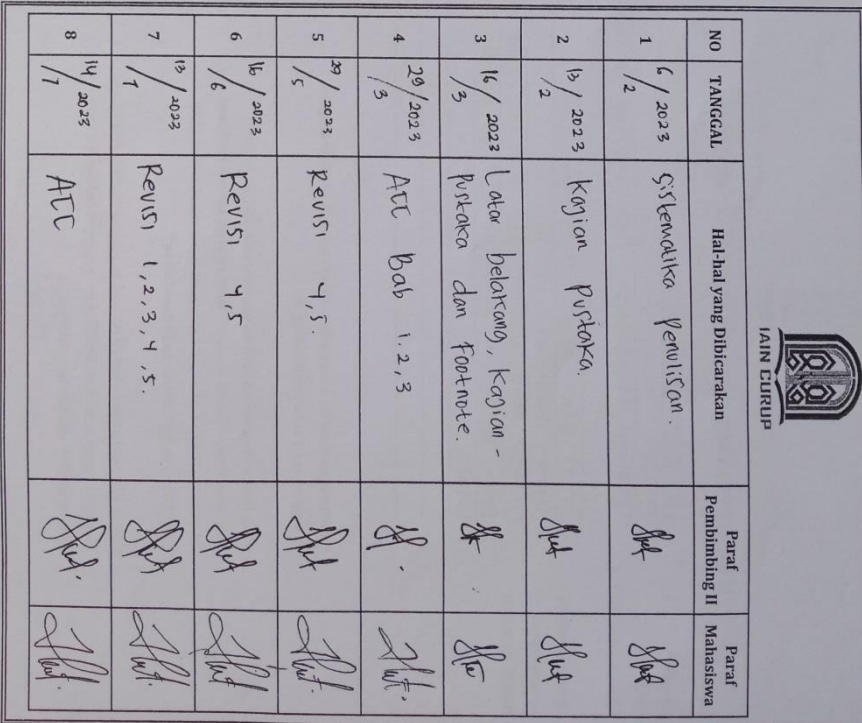 IAIN CURUP
NO TANGGAL Hal-hal yang Dibicarakan Paraf Pembimbing II Paraf Mahasiswa
1 6/2 2023 Sistematika Penulisan.
2 13/2 2023 Kajian Pustaka.
3 16/3 2023 Latar belakang, Kajian -
Pustaka dan Footnote.
4 29/3 2023 ACC Bab 1, 2, 3
5 29/5 2023 Revisi 4, 5.
6 16/6 2023 Revisi 4, 5
7 13/7 2023 Revisi 1, 2, 3, 4, 5.
8 14/7 2023 ACC